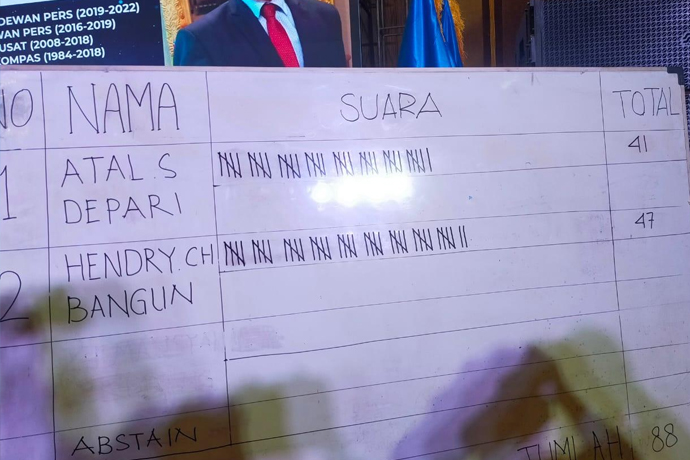 DEWAN PERS (2019-2022)
WAN PERS (2016-2019)
USAT (2008-2018)
KOMPAS (1984-2018)
NO NAMA SUARA TOTAL
1 ATAL.S 41
DEPARI
2 HENDRY.CH 47
BANGUN
ABSTAIN
JUMLAH 88